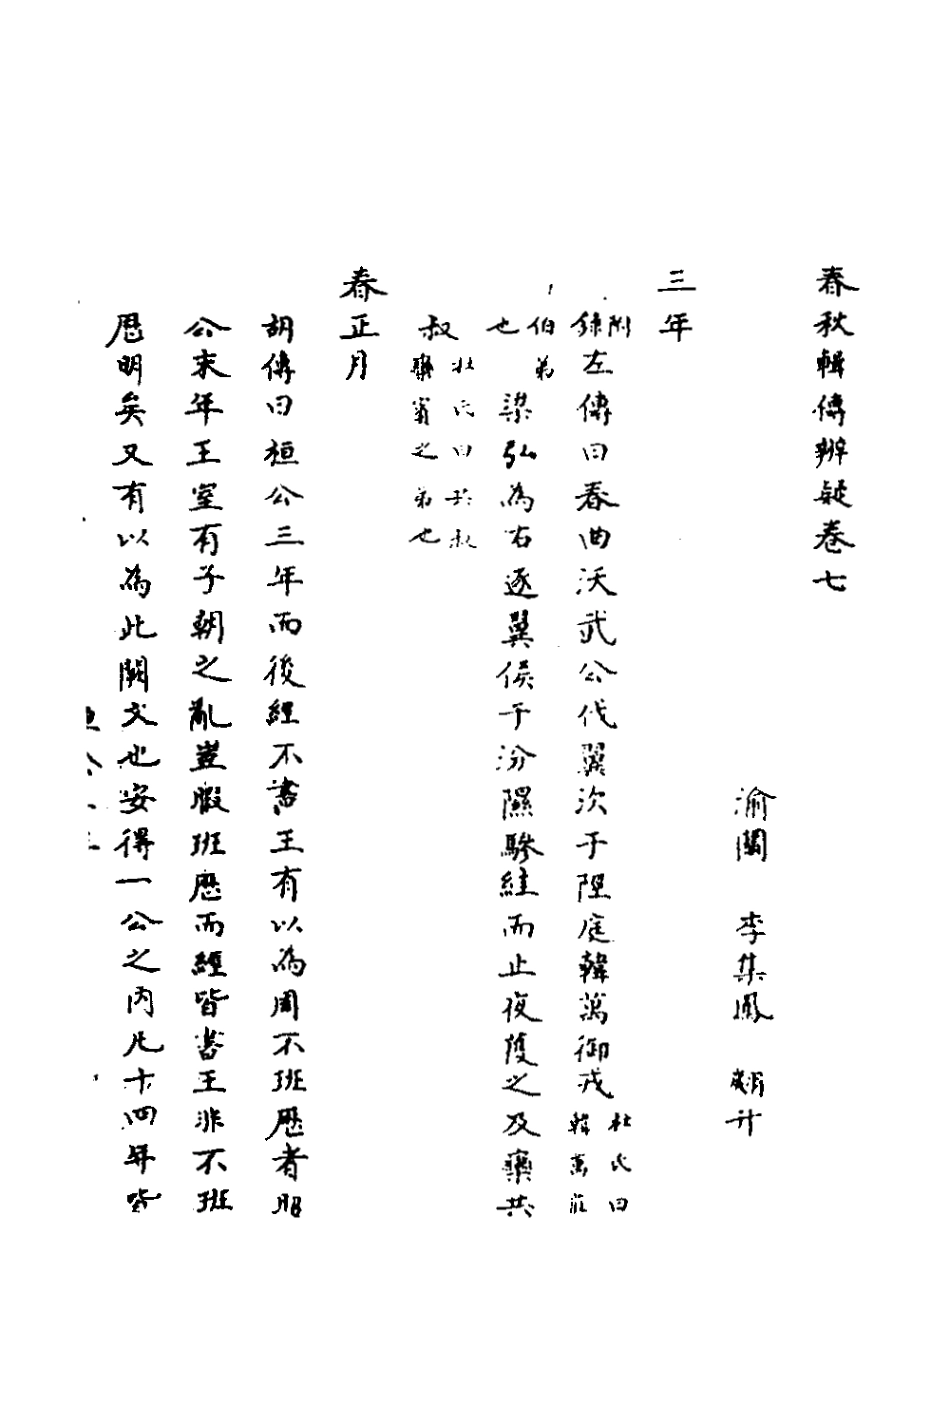 春秋輯傳辨疑卷七
渝關　李集鳳　翽升
三年
附錄左傳曰春曲沃武公伐翼次于陘庭韓萬御戎杜氏曰韓萬莊
伯弟也梁弘為右逐翼侯于汾隰驂絓而止夜獲之及欒共
叔杜氏曰共叔欒賓之弟也
春正月
胡傳曰桓公三年而後經不書王有以為周不班厯者昭
公末年王室有子朝之亂豈暇班厯而經皆書王非不班
厯明矣又有以為此闕文也安得一公之內凡十四年皆